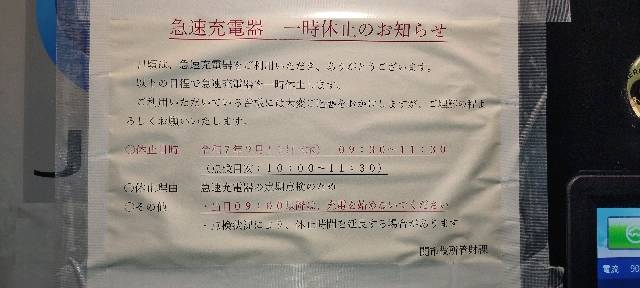 急速充電器　一時休止のお知らせ
日頃は、急速充電器をご利用いただき、ありがとうございます。
以下の日程で急速充電器を一時休止します。
ご利用いただいている皆様には大変ご迷惑をおかけしますが、ご理解の程よ
ろしくお願いいたします。
○休止日時　令和7年9月 09:30～11:30
(点検目安：10:00～11:30)
○休止理由　急速充電器の定期点検のため
○その他　・当日09:00以降は、充電を始めないでください
・点検状況により、休止時間を延長する場合があります
関市役所管財課
電流 90